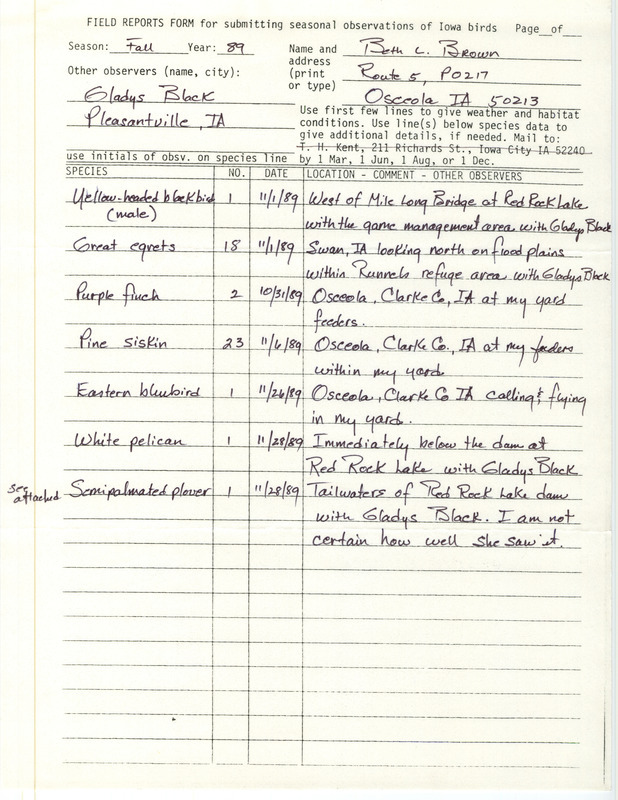 FIELD REPORTS FORM for submitting seasonal observations of Iowa birds Page__of__
Season: Fall Year: 89 Name and Beth L. Brown
address
Other observers (name, city): (print Route 5, PO217
or type)
Gladys Black Osceola IA 50213
Pleasantville, IA Use first few lines to give weather and habitat
conditions. Use line(s) below species data to
give additional details, if needed. Mail to:
T. H. Kent, 211 Richards St., Iowa City IA 52240
use initials of obsv. on species line by 1 Mar, 1 Jun, 1 Aug, or 1 Dec.
SPECIES NO. DATE LOCATION - COMMENT - OTHER OBSERVERS
Yellow-headed blackbird 1 11/1/89 West of Mile Long Bridge at Red Rock Lake
(male) with the game management area with Gladys Black
Great egrets 18 11/1/89 Swan, IA looking north on flood plains
within Runnels refuge area with Gladys Black
Purple finch 2 10/31/89 Osceola, Clarke Co, IA at my yard
feeders.
Pine siskin 23 11/6/89 Osceola, Clarke Co., IA at my feeders
within my yard
Eastern bluebird 1 11/26/89 Osceola, Clarke Co IA calling & flying
in my yard.
White pelican 1 11/28/89 Immediately below the dam at
Red Rock Lake with Gladys Black
see attached Semipalmated plover 1 11/28/89 Tailwaters of Red Rock Lake dam
with Gladys Black. I am not
certain how well she saw it.